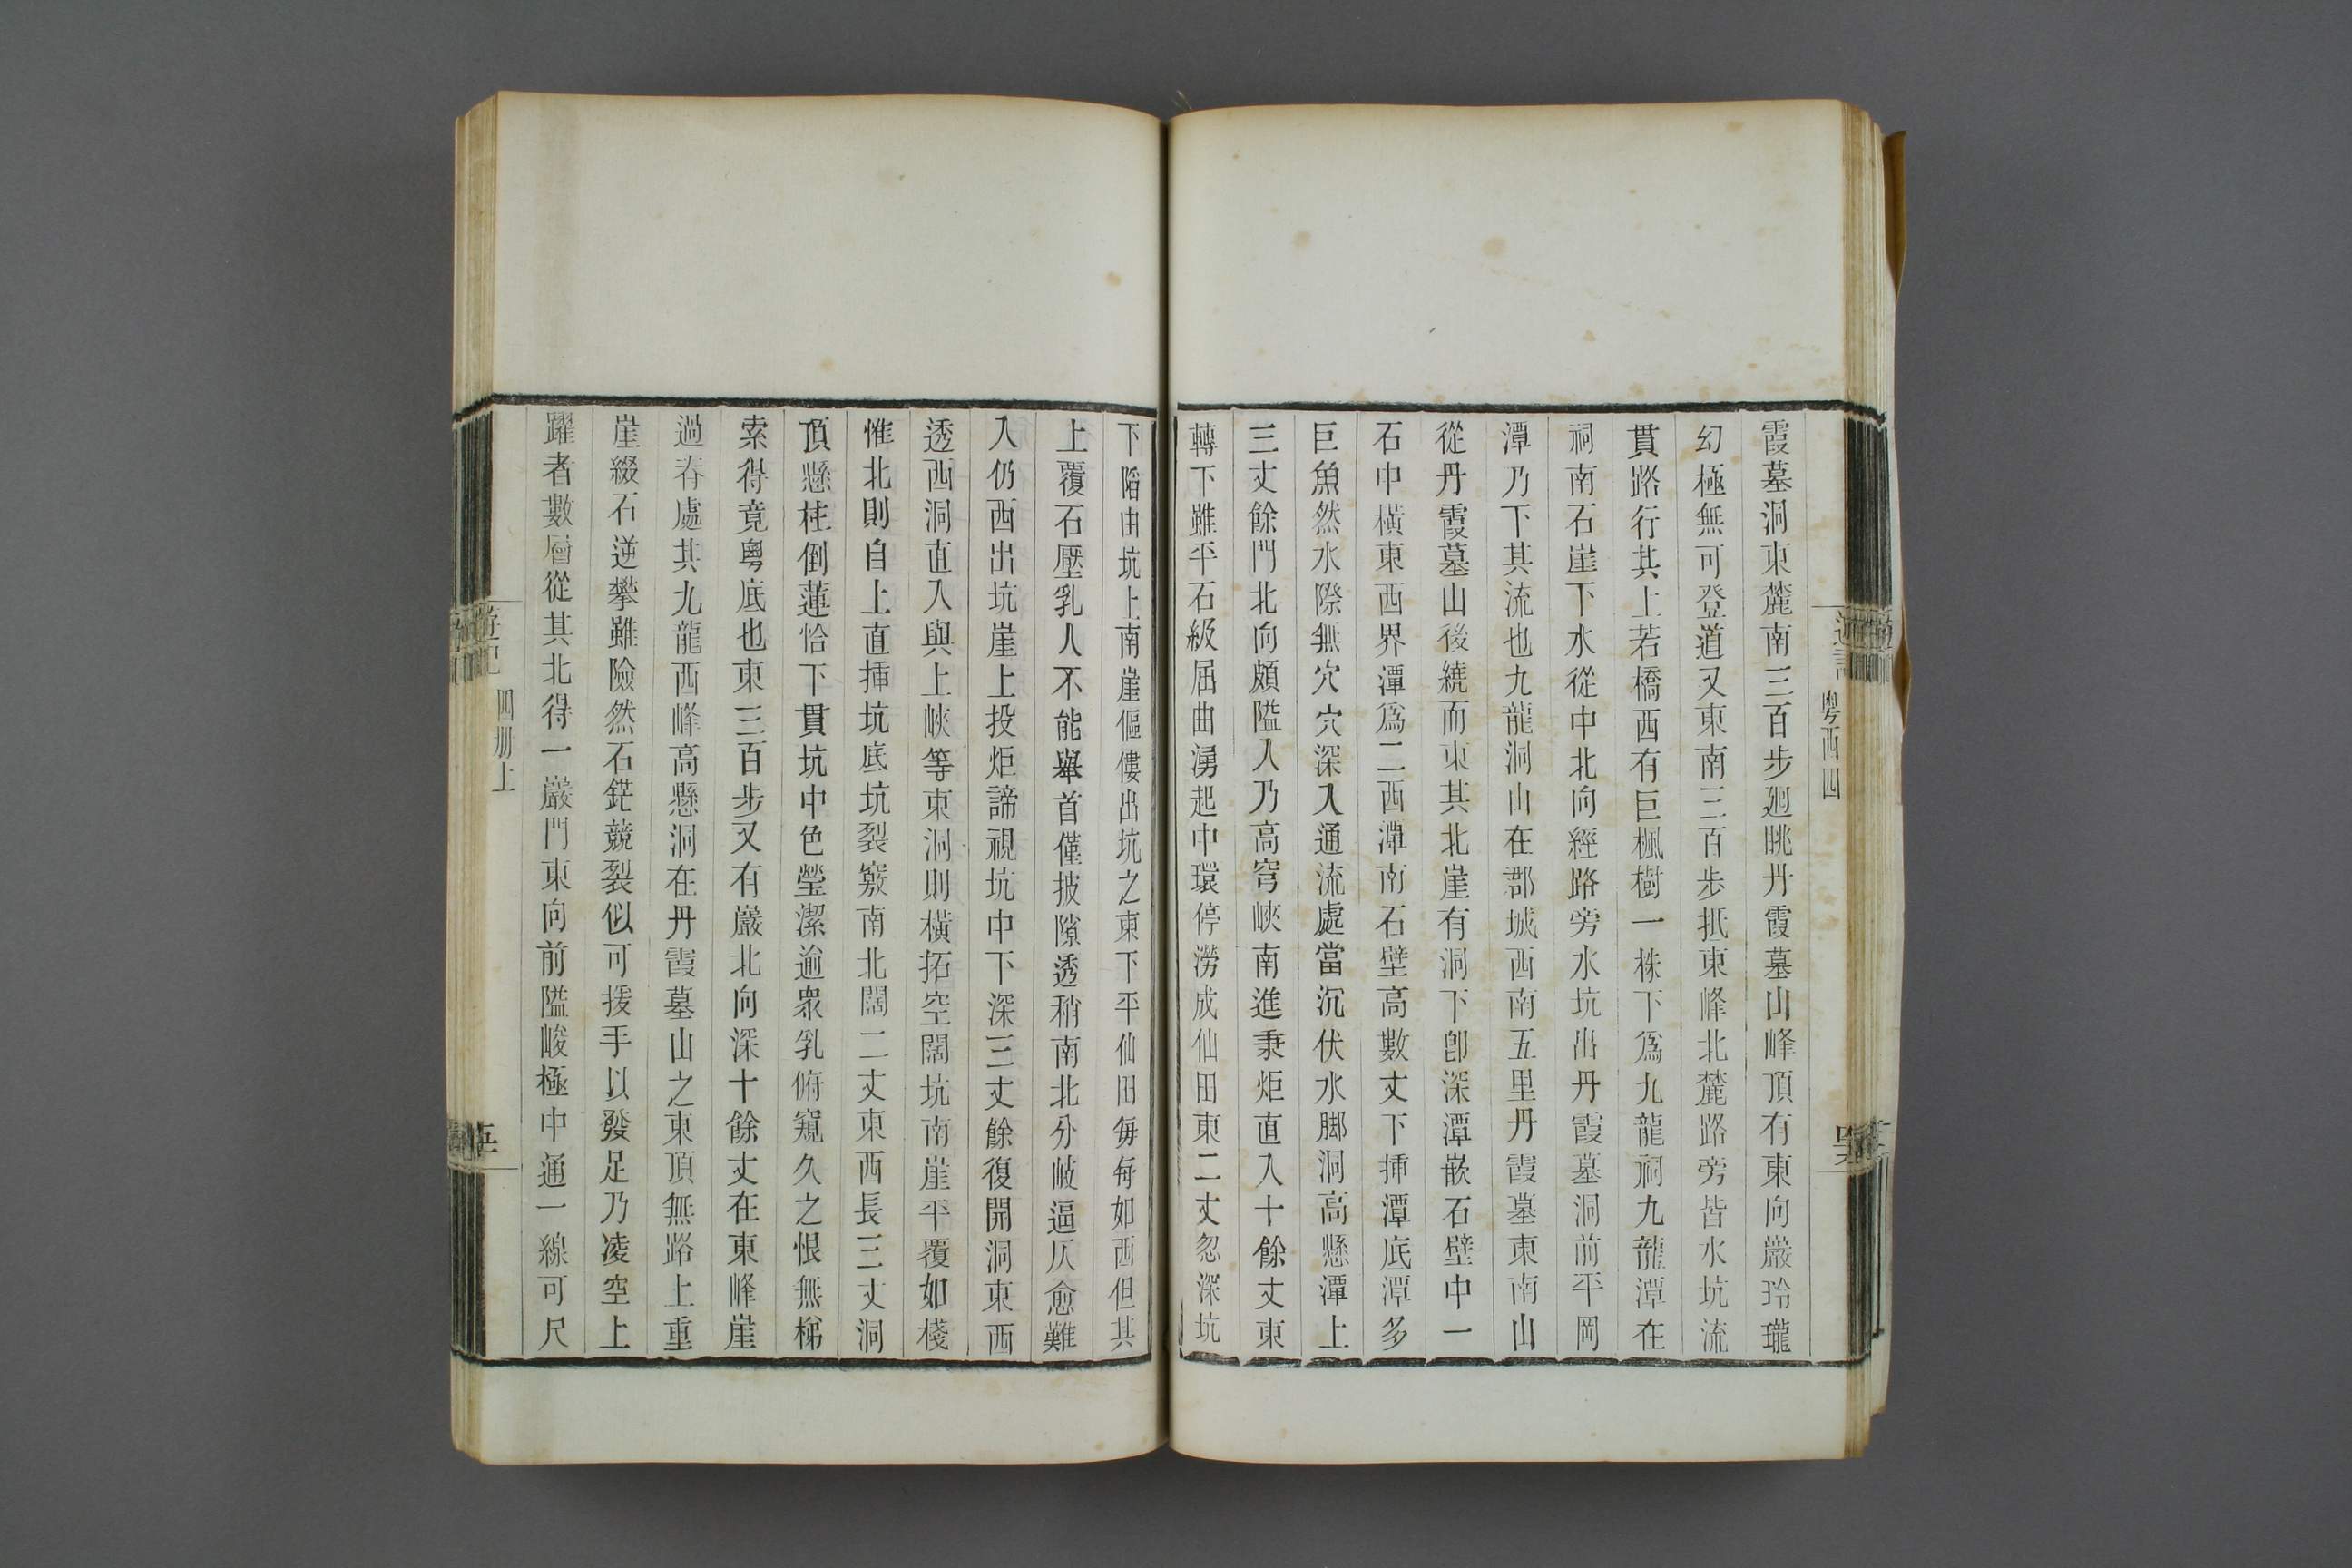 粵西四
霞墓洞東麓南三百步廻眺丹霞墓山峰頂有東向巖玲瓏
幻極無可登道又東南三百步抵東峰北麓路旁皆水坑流
貫路行其上若橋西有巨楓樹一株下爲九龍祠九龍潭在
祠南石崖下水從中北向經路旁水坑出丹霞墓洞前平岡
潭乃下其流也九龍洞山在郡城西南五里丹霞墓東南山
從丹霞墓山後繞而東其北崖有洞下卽深潭嵌石壁中一
石中橫東西界潭爲二西潭南石壁高數丈下揷潭底潭多
巨魚然水際無穴穴深入通流處當沉伏水脚洞高懸潭上
三丈餘門北向頗隘入乃高穹峽南進秉炬直入十餘丈東
轉下雖平石級屈曲湧起中環停澇成仙田東二丈忽深坑
下陷由坑上南崖傴僂出坑之東下平仙田每每如西但其
上覆石壓乳人不能舉首僅披隙透稍南北分岐逼仄愈難
入仍西出坑崖上投炬諦視坑中下深三丈餘復開洞東西
透西洞直入與上峽等東洞則橫拓空闊坑南崖平覆如棧
惟北則自上直揷坑底坑裂竅南北闊二丈東西長三丈洞
頂懸柱倒蓮恰下貫坑中色瑩潔逾衆乳俯窺久之恨無梯
索得竟粵底也東三百步又有巖北向深十餘丈在東峰崖
過脊處其九龍西峰高懸洞在丹霞墓山之東頂無路上重
崖綴石逆攀雖險然石鋩競裂似可援手以發足乃凌空上
躍者數層從其北得一巖門東向前隘峻極中通一線可尺
遊記
四册上
五